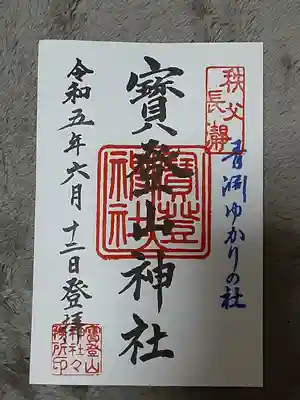 秩父
長瀞
青淵ゆかりの社
寳登山神社
寳登山神社
令和五年六月十二日登拝
寳登山
神社々
務所印